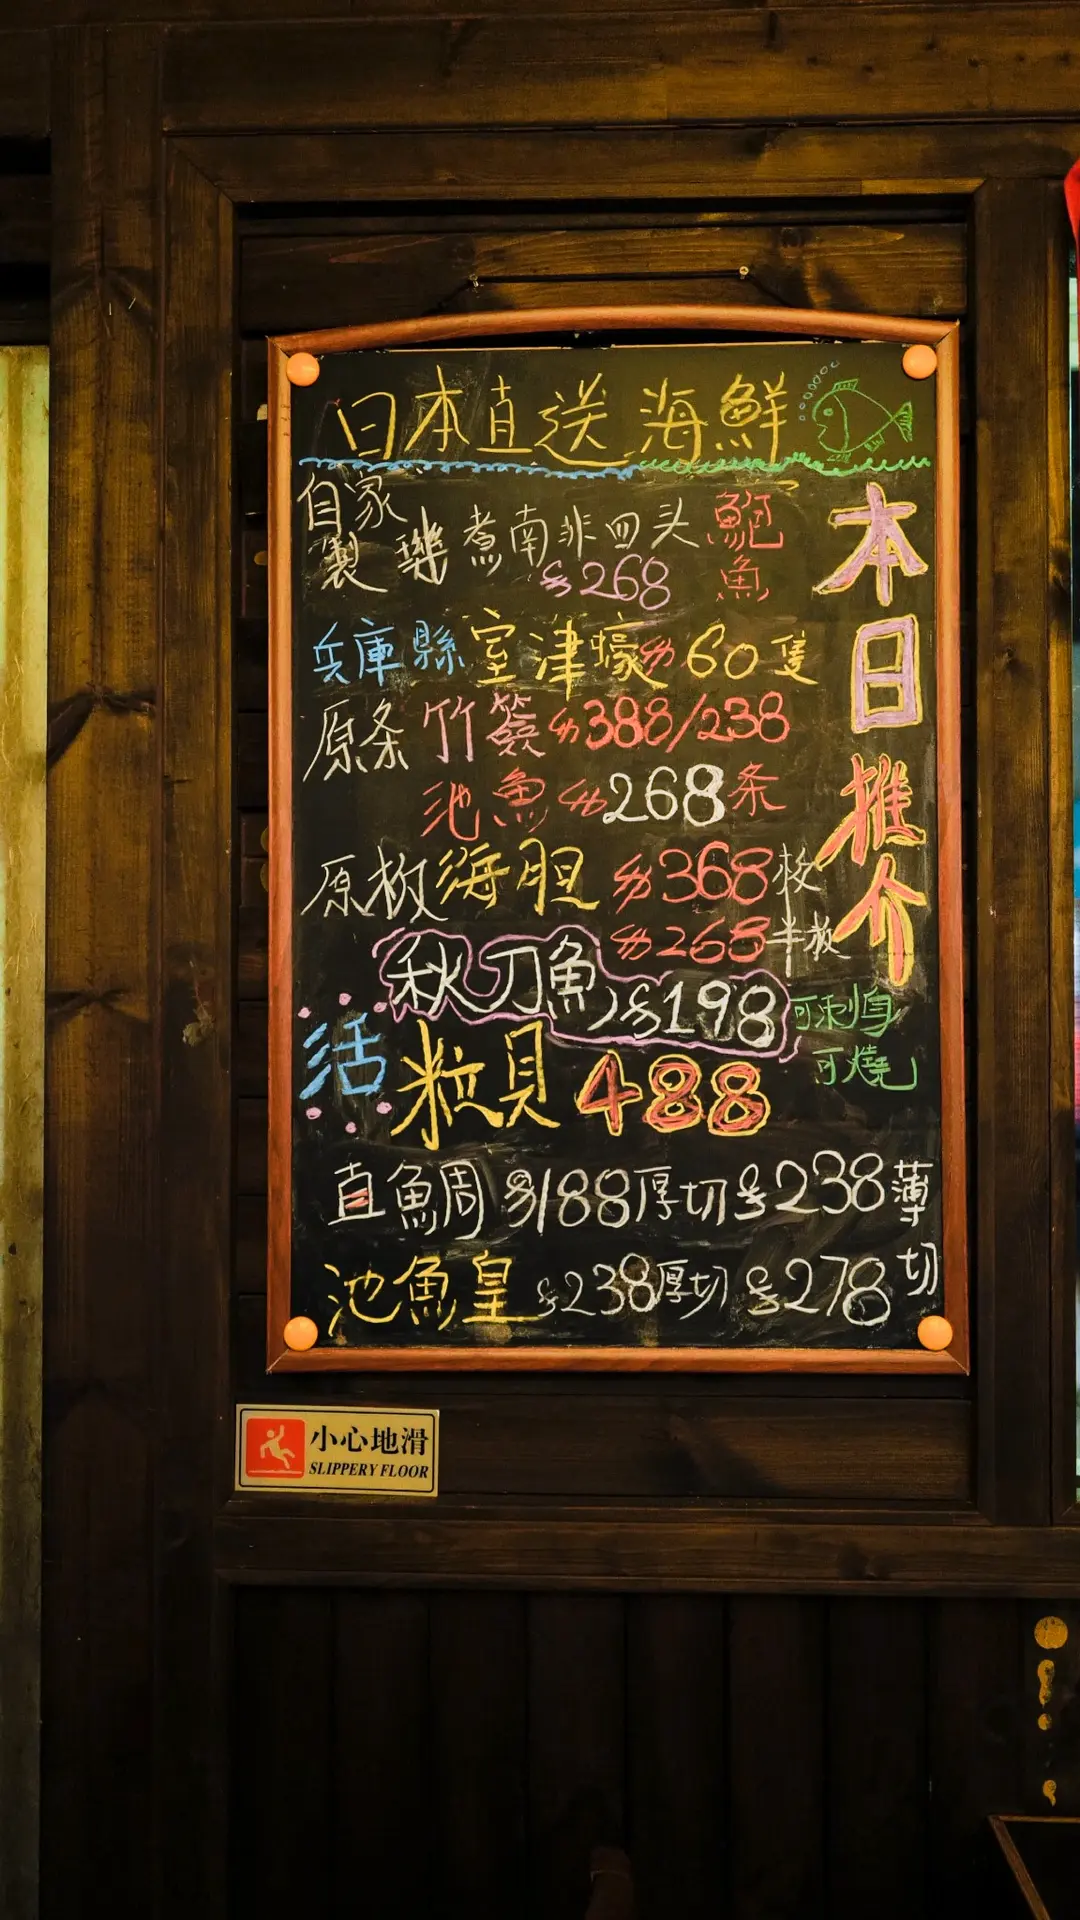 日本直送海鮮
本日推介
自家製 煮南非四头鮑魚
$268
兵庫縣室津蠔$60隻
原条竹簽$388/238
池魚$268条
原板海胆 $368枚
$268半板
秋刀魚$198 可刺身
可燒
活粒貝488
直鯛周$188厚切$238薄切
池魚皇$238厚切 $278
小心地滑
SLIPPERY FLOOR